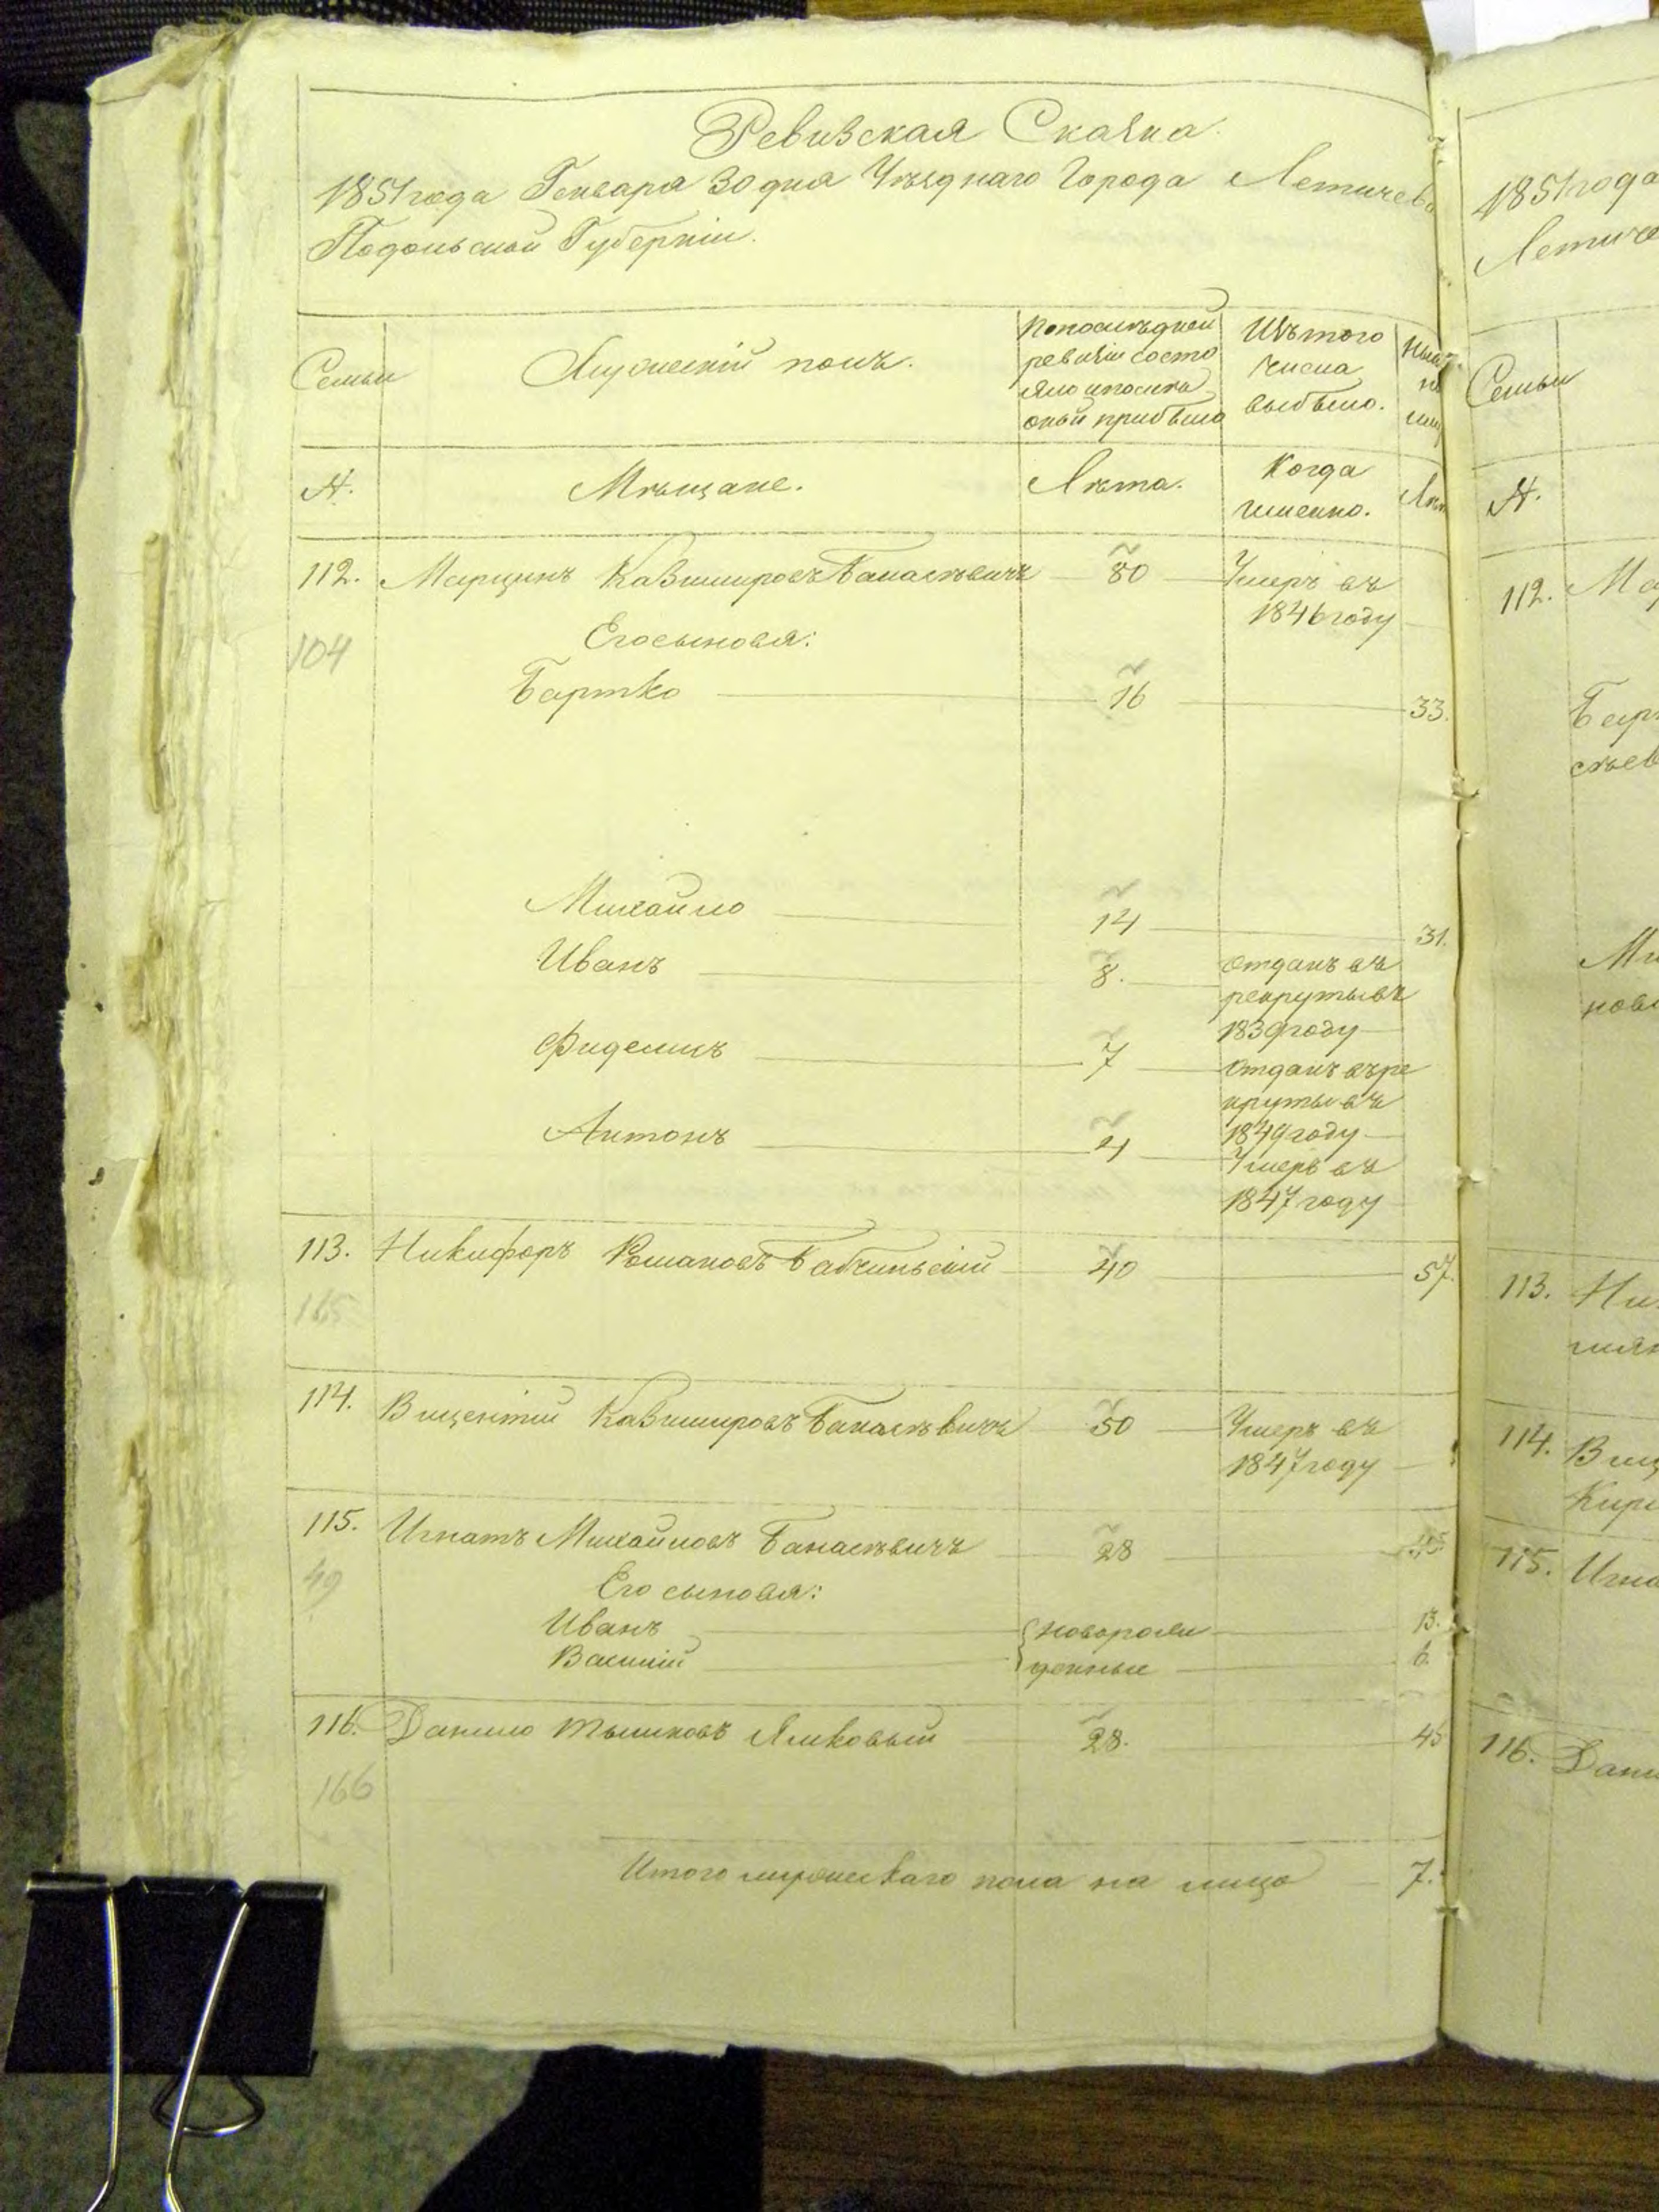 Ревизская Сказка
1851 года Генваря 30 дня Уѣзднаго Города Летичева
Подольской Губерніи.
Семьи
Мужескій полъ.
По послѣдней
ревизіи состо
яло и послѣ
оной прибыло
Изъ того
числа
выбыло.
№.
Мѣщане.
Лѣта.
Когда
именно.
112. Марцинъ Казимировъ Банасѣвичъ 80 Умеръ въ
1846 году
104
Его сыновья:
Бартко 16 33.
Михайло 14 31.
Иванъ 8. Отданъ въ
рекруты въ
1839 году
Фиделисъ 7 Отданъ въ ре
круты въ
1849 году
Антонъ 4 Умеръ въ
1847 году
113. Никифоръ Романовъ Бабчинскій 40 57.
165
114. Вицентій Казимировъ Банасѣвичъ 50 Умеръ въ
1847 году
115. Игнатъ Михайловъ Банасѣвичъ 28 45
49
Его сыновья:
Иванъ новорож 13.
Василій денные 6.
116. Данило 28. 45
166
Итого мужескаго пола на лицо 7.
1851 года
Летиче
Семьи
№.
112. Ма
Бар
сѣев
Ми
нова
113. Ни
114. Виц
Кири
115. Игна
116. Дани